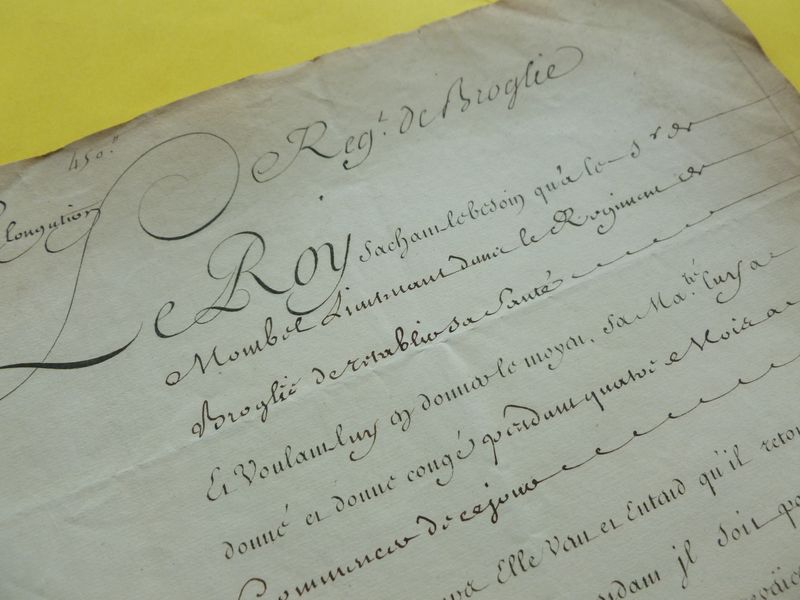 450.
Reg.t de Broglie
longation
Le Roy sachant le besoin qu'a le Sr de
Mombel Lieutenant dans le Regiment de
Broglie de rétablir sa Santé
Et Voulant luy en donner le moyen, Sa Ma.té luy a
donné et donne congé pendant quatre Mois a
Commencer de ce jour
Elle Veut et Entend qu'il retou
il soit pa